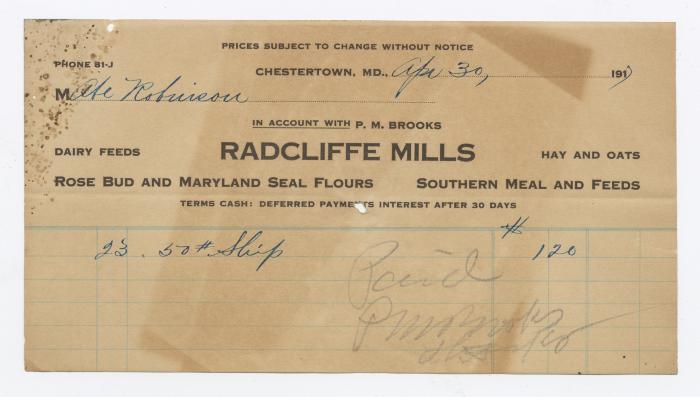 PRICES SUBJECT TO CHANGE WITHOUT NOTICE
PHONE 81-J
CHESTERTOWN, MD., Apr 30, 191
M Abe Robinson
IN ACCOUNT WITH P. M. BROOKS
DAIRY FEEDS RADCLIFFE MILLS HAY AND OATS
ROSE BUD AND MARYLAND SEAL FLOURS SOUTHERN MEAL AND FEEDS
TERMS CASH: DEFERRED PAYMENTS INTEREST AFTER 30 DAYS
$
23. 50# Ship 120
Paid
P M Brooks